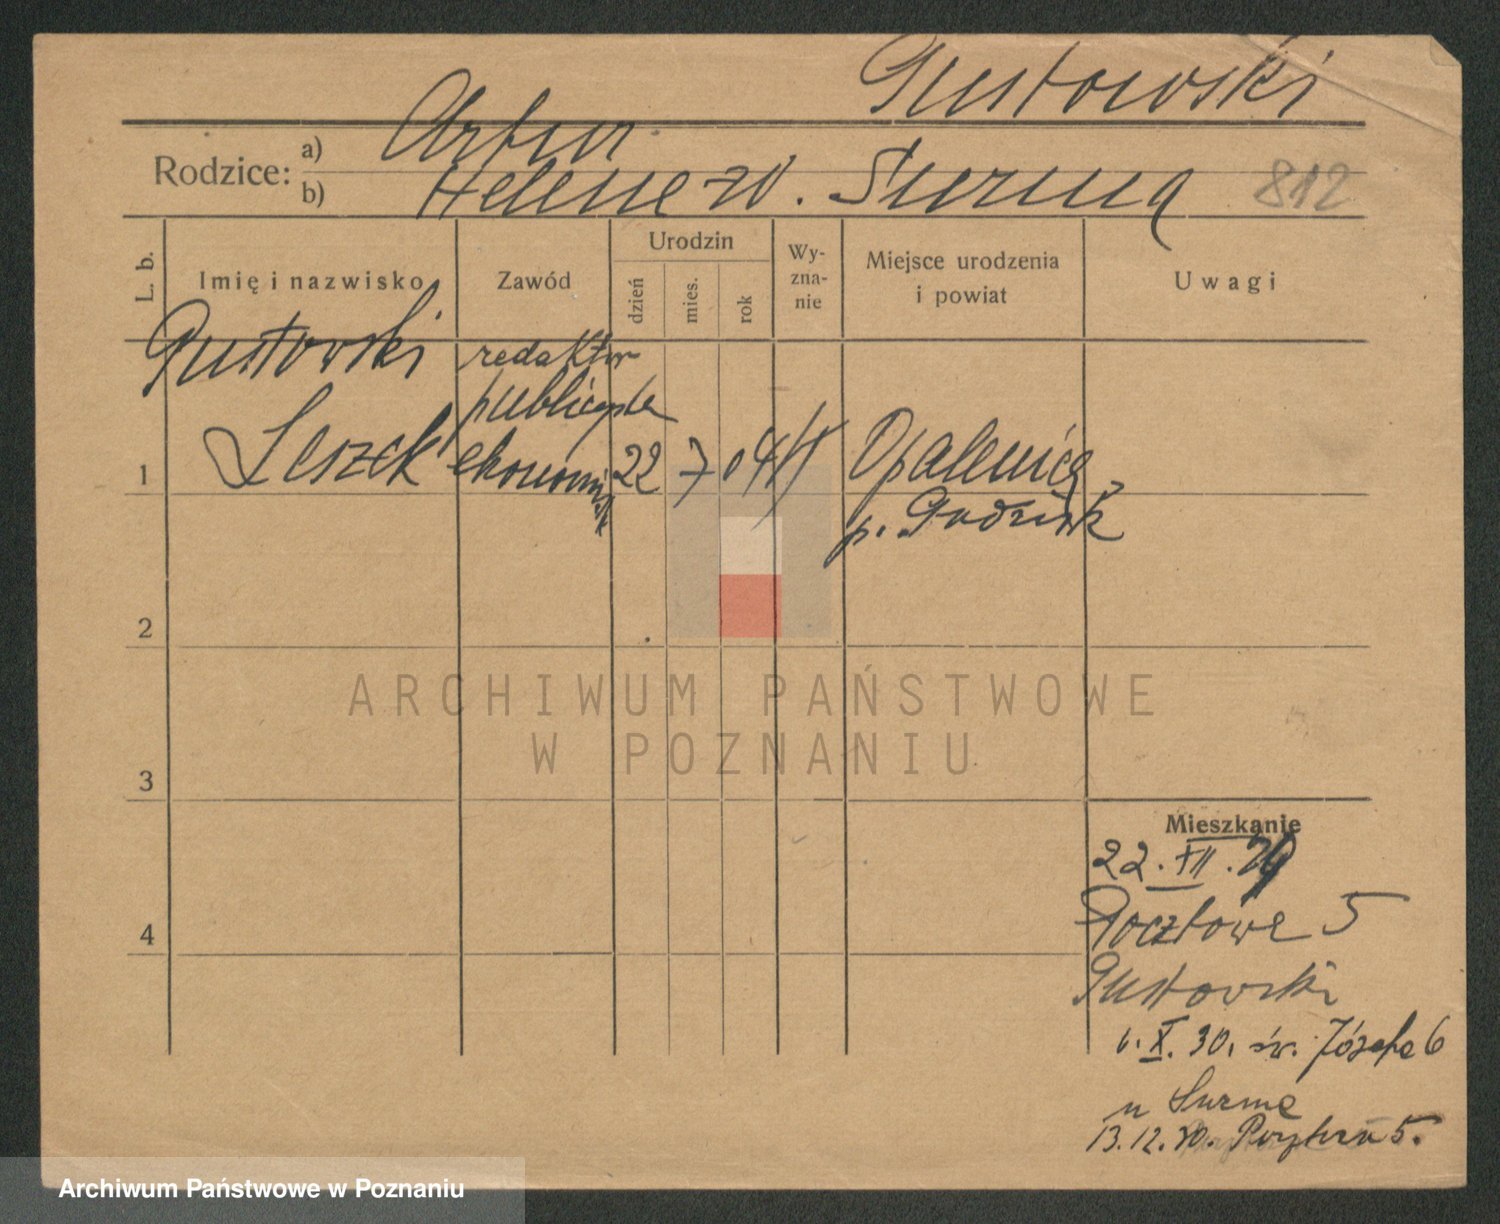 Gustowski
Rodzice: a) Artur
b) Helena z d. Surma 812
L. b. Imię i nazwisko Zawód Urodzin dzień mies. rok Wy-zna-nie Miejsce urodzenia i powiat Uwagi
Gustowski redaktor
publicysta
1 Leszek ekonomista 22 7 04 Opalenica
p. Grodzisk
2
ARCHIWUM PAŃSTWOWE
W POZNANIU
3
Mieszkanie
22. XII.
4 Pocztowa 5
Gustowski
1. X. 30. św. Józefa 6
u Surma
13.12.30. 5.
Archiwum Państwowe w Poznaniu